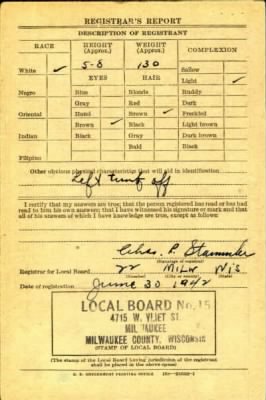 REGISTRAR'S REPORT
DESCRIPTION OF REGISTRANT
RACE HEIGHT (Approx.) WEIGHT (Approx.) COMPLEXION
5-8 130
White ✓ EYES HAIR Sallow
Light ✓
Negro Blue Blonde Ruddy
Gray Red Dark
Oriental Hazel Brown ✓ Freckled
Brown ✓ Black Light brown
Indian Black Gray Dark brown
Bald Black
Filipino
Other obvious physical characteristics that will aid in identification
Left
off
I certify that my answers are true; that the person registered has read or has had
read to him his own answers; that I have witnessed his signature or mark and that
all of his answers of which I have knowledge are true, except as follows:
Chas. P.
(Signature of registrar)
Registrar for Local Board 22 Milw Wis
(Number) (City or county) (State)
Date of registration June 30 1942
LOCAL BOARD No. 15
4715 W. VLIET ST.
MILWAUKEE
MILWAUKEE COUNTY, WISCONSIN
(STAMP OF LOCAL BOARD)
(The stamp of the Local Board having jurisdiction of the registrant
shall be placed in the above space.)
U. S. GOVERNMENT PRINTING OFFICE